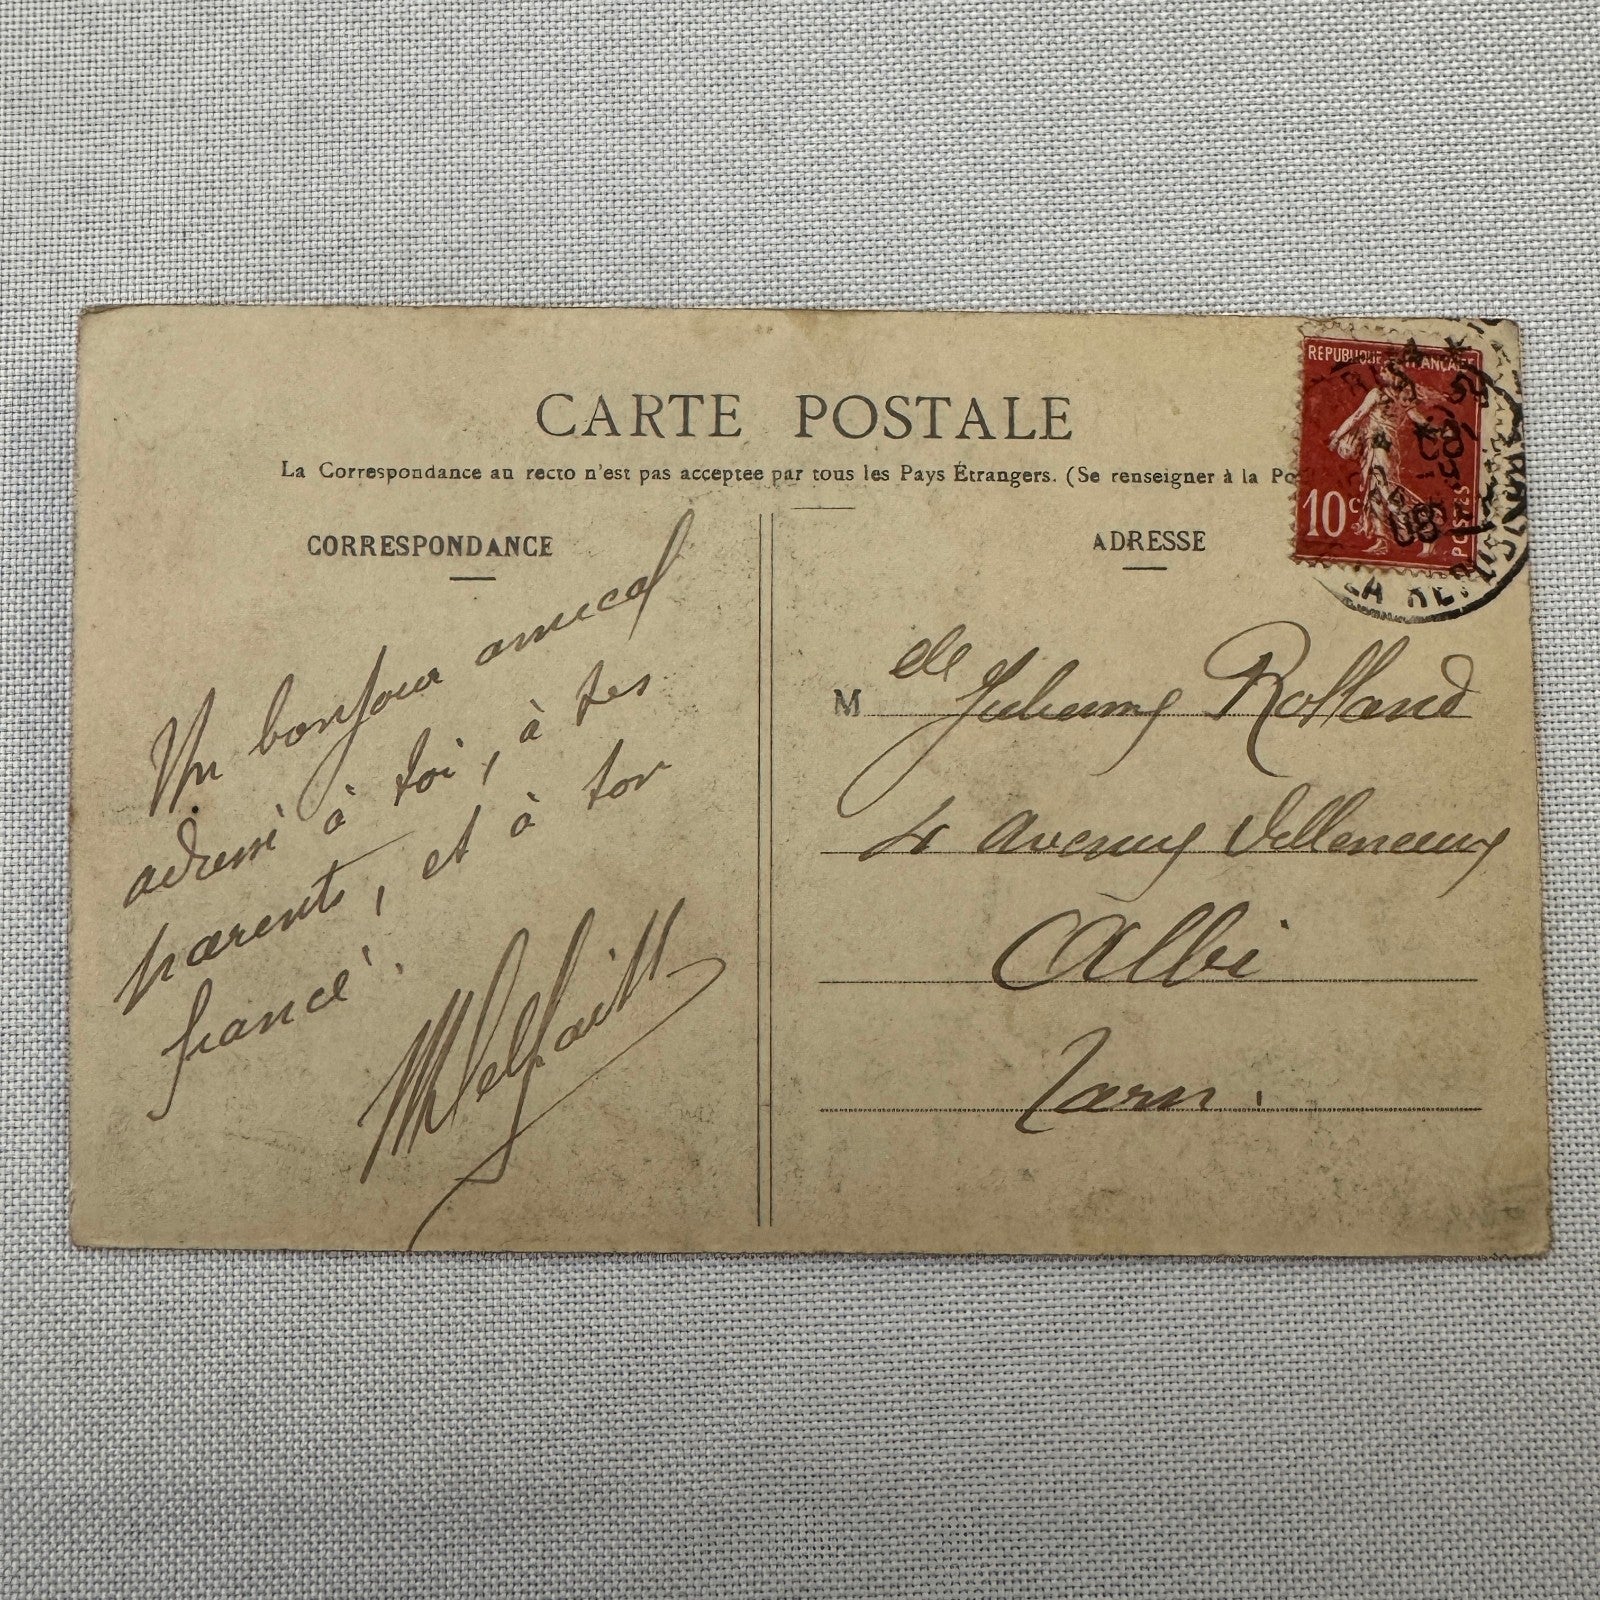 CARTE POSTALE
La Correspondance au recto n'est pas acceptee par tous les Pays Étrangers. (Se renseigner à la Po
CORRESPONDANCE
Un bonjour amical
adressé à toi, à tes
parents, et à ton
fiancé.
ADRESSE
REPUBLIQUE FRANÇAISE
10 c
POSTES
08
LA RE
Melle Rolland
Avenue Villeneuve
Albi
Tarn.